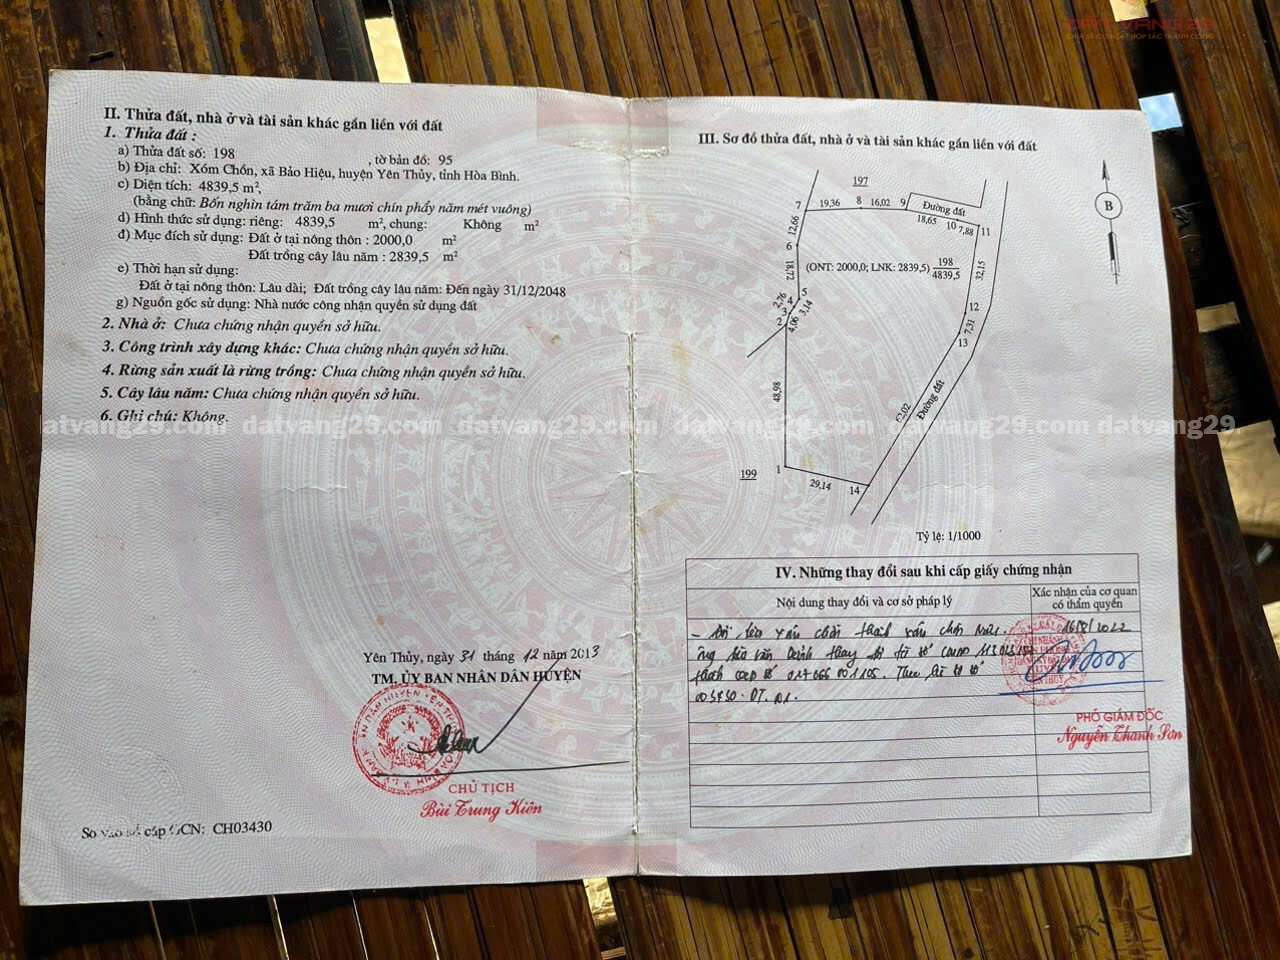 ĐẤT VÀNG 29
II. Thửa đất, nhà ở và tài sản khác gắn liền với đất
1. Thửa đất :
a) Thửa đất số: 198 , tờ bản đồ: 95
b) Địa chỉ: Xóm Chồn, xã Bảo Hiệu, huyện Yên Thủy, tỉnh Hòa Bình.
c) Diện tích: 4839,5 m²,
(bằng chữ: Bốn nghìn tám trăm ba mươi chín phẩy năm mét vuông)
d) Hình thức sử dụng: riêng: 4839,5 m², chung: Không m²
đ) Mục đích sử dụng: Đất ở tại nông thôn : 2000,0 m²
Đất trồng cây lâu năm : 2839,5 m²
e) Thời hạn sử dụng:
Đất ở tại nông thôn: Lâu dài; Đất trồng cây lâu năm: Đến ngày 31/12/2048
g) Nguồn gốc sử dụng: Nhà nước công nhận quyền sử dụng đất
2. Nhà ở: Chưa chứng nhận quyền sở hữu.
3. Công trình xây dựng khác: Chưa chứng nhận quyền sở hữu.
4. Rừng sản xuất là rừng trồng: Chưa chứng nhận quyền sở hữu.
5. Cây lâu năm: Chưa chứng nhận quyền sở hữu.
6. Ghi chú: Không.
atvang29.com datvang29.com datvang29.com datvang29.com datvang29.com datvang29.
Yên Thủy, ngày 31 tháng 12 năm 2013
TM. ỦY BAN NHÂN DÂN HUYỆN
CHỦ TỊCH
Bùi Trung Kiên
Số vào sổ cấp GCN: CH03430
III. Sơ đồ thửa đất, nhà ở và tài sản khác gắn liền với đất
197
7 19,36 8 16,02 9 Đường đất
18,65 10 7,88 11
12,66
6
B
18,72
(ONT: 2000,0; LNK: 2839,5) 198
4839,5
32,15
2,76 4 5
3 3,14
2 4,06
12
7,31
13
48,98
62,02
Đường đất
199
1
29,14
14
Tỷ lệ: 1/1000
IV. Những thay đổi sau khi cấp giấy chứng nhận
Nội dung thay đổi và cơ sở pháp lý
Xác nhận của cơ quan
có thẩm quyền
PHÓ GIÁM ĐỐC
Nguyễn Thanh Sơn